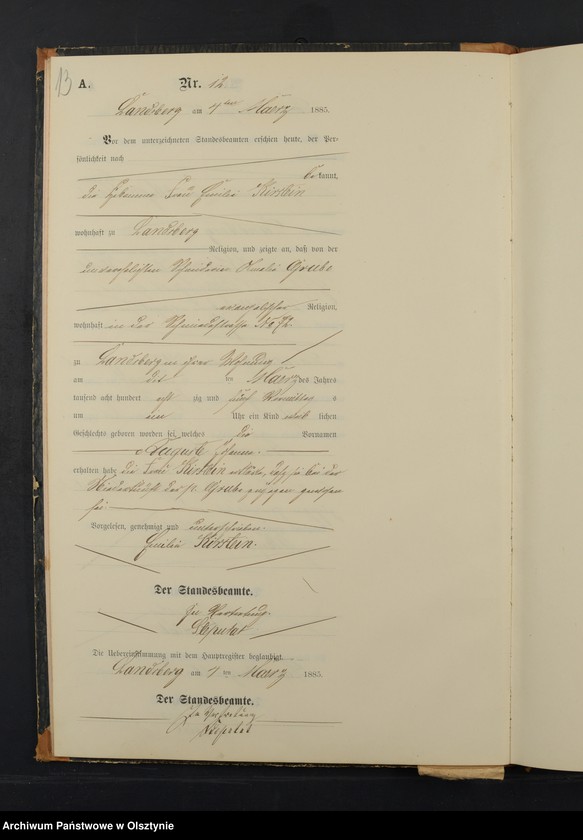 13 A. Nr. 12.
Landsberg am 4ten März 1885.
Vor dem unterzeichneten Standesbeamten erschien heute, der Per-
sönlichkeit nach
bekannt,
die Hebamme Frau Emilie Kirstein
wohnhaft zu Landsberg
Religion, und zeigte an, daß von der
unverehelichten Amalie Grube
evangelischer Religion,
wohnhaft in der No 72
zu Landsberg in ihrer Wohnung
am ten März des Jahres
tausend acht hundert acht zig und fünf Vormittags
um Uhr ein Kind weib lichen
Geschlechts geboren worden sei, welches die Vornamen
Auguste Johanna
erhalten habe. Die Frau Kirstein erklärte, daß sie bei der
Niederkunft der p. Grube zugegen gewesen
sei.
Vorgelesen, genehmigt und unterschrieben.
Emilie Kirstein.
Der Standesbeamte.
In Vertretung.
Die Uebereinstimmung mit dem Hauptregister beglaubigt.
Landsberg am 4 ten März 1885.
Der Standesbeamte.
In Vertretung
Archiwum Państwowe w Olsztynie